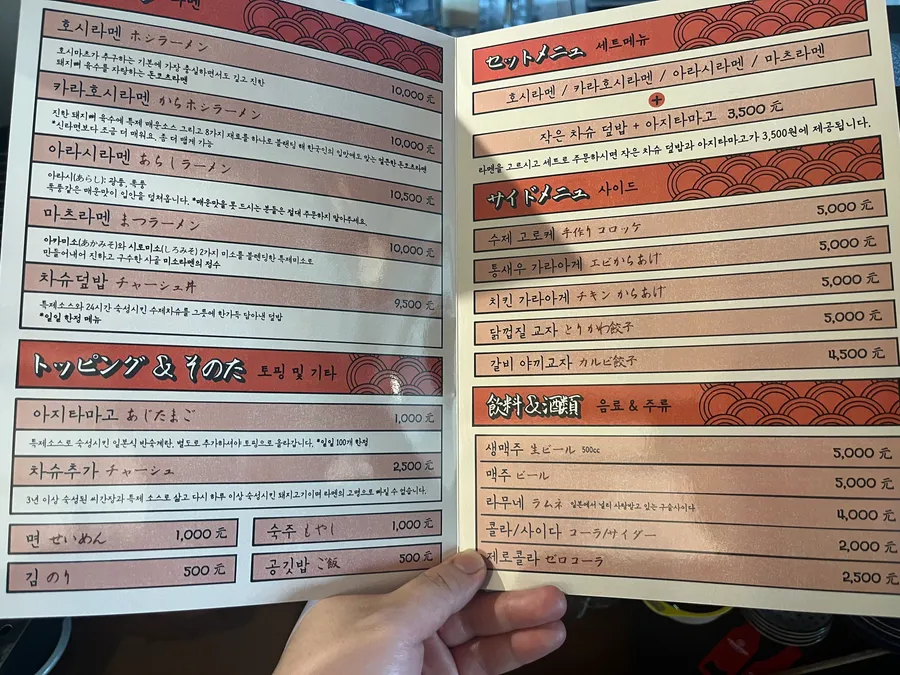 라멘
호시라멘 ホシラーメン
호시마츠가 추구하는 기본에 가장 충실하면서도 깊고 진한
돼지뼈 육수를 자랑하는 돈코츠라멘
10,000 元
카라호시라멘 からホシラーメン
진한 돼지뼈 육수에 특제 매운소스 그리고 8가지 재료를 하나로 블랜딩 해 한국인의 입맛에도 맞는 얼큰한 돈코츠라멘
*신라면보다 조금 더 매워요. 좀 더 맵게 가능
10,000 元
아라시라멘 あらしラーメン
아라시(あらし): 광풍, 폭풍
폭풍같은 매운맛이 입안을 덮쳐옵니다. *매운맛을 못 드시는 분들은 절대 주문하지 말아주세요.
10,500 元
마츠라멘 まつラーメン
아카미소(あかみそ)와 시로미소(しろみそ) 2가지 미소를 블랜딩한 특제미소로
만들어내어 진하고 구수한 사골 미소라멘의 정수
10,000 元
차슈덮밥 チャーシュ丼
특제소스와 24시간 숙성시킨 수제차슈를 그릇에 한가득 담아낸 덮밥
*일일 한정 메뉴
9,500 元
トッピング & そのた 토핑 및 기타
아지타마고 あじたまご 1,000 元
특제소스로 숙성시킨 일본식 반숙계란, 별도로 추가하셔야 토핑으로 올라갑니다. *일일 100개 한정
차슈추가 チャーシュ 2,500 元
3년 이상 숙성된 씨간장과 특제 소스로 삶고 다시 하루 이상 숙성시킨 돼지고기이며 라멘의 고명으로 빠질 수 없습니다.
면 せいめん 1,000 元
숙주 もやし 1,000 元
김 のり 500 元
공깃밥 ご飯 500 元
セットメニュ 세트메뉴
호시라멘 / 카라호시라멘 / 아라시라멘 / 마츠라멘
+
작은 차슈 덮밥 + 아지타마고 3,500 元
라멘을 고르시고 세트로 주문하시면 작은 차슈 덮밥과 아지타마고가 3,500원에 제공됩니다.
サイドメニュ 사이드
수제 고로케 手作り コロッケ 5,000 元
통새우 가라아게 エビからあげ 5,000 元
치킨 가라아게 チキン からあげ 5,000 元
닭껍질 교자 とりかわ餃子 5,000 元
갈비 야끼교자 カルビ餃子 4,500 元
飲料&酒類 음료 & 주류
생맥주 生ビール 500cc 5,000 元
맥주 ビール 5,000 元
라무네 ラムネ 일본에서 널리 사랑받고 있는 구슬사이다 4,000 元
콜라/사이다 コーラ/サイダー 2,000 元
제로콜라 ゼロコーラ 2,500 元